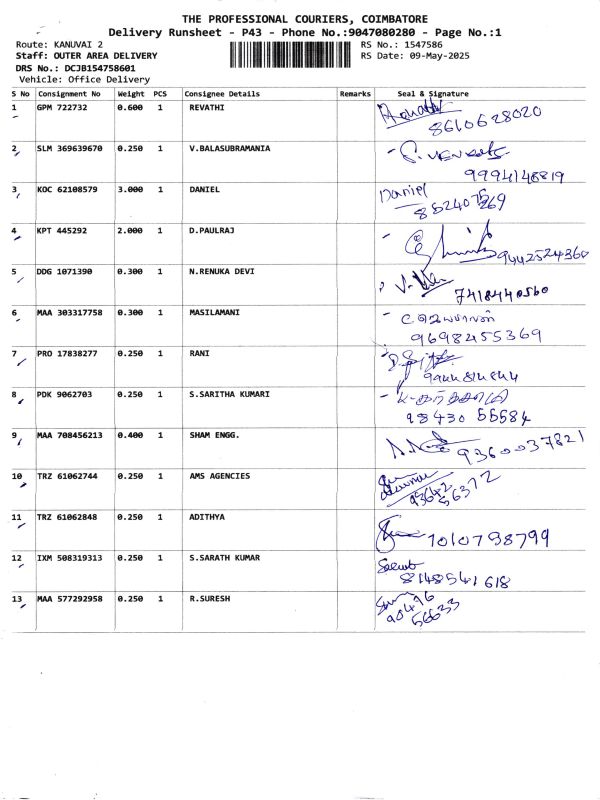 THE PROFESSIONAL COURIERS, COIMBATORE
Delivery Runsheet - P43 - Phone No.:9047080280 - Page No.:1
Route: KANUVAI 2 RS No.: 1547586
Staff: OUTER AREA DELIVERY RS Date: 09-May-2025
DRS No.: DCJB154758601
Vehicle: Office Delivery
S No Consignment No Weight PCS Consignee Details Remarks Seal & Signature
1 GPM 722732 0.600 1 REVATHI
8610628020
2 SLM 369639670 0.250 1 V.BALASUBRAMANIA
9994148819
3 KOC 62108579 3.000 1 DANIEL Daniel
4 KPT 445292 2.000 1 D.PAULRAJ
9442524360
5 DDG 1071390 0.300 1 N.RENUKA DEVI
7418440560
6 MAA 303317758 0.300 1 MASILAMANI
9698455369
7 PRO 17838277 0.250 1 RANI
8 PDK 9062703 0.250 1 S.SARITHA KUMARI
98430 55584
9 MAA 708456213 0.400 1 SHAM ENGG. 9360037821
10 TRZ 61062744 0.250 1 AMS AGENCIES
93642
56372
11 TRZ 61062848 0.250 1 ADITHYA
1010798799
12 IXM 508319313 0.250 1 S.SARATH KUMAR
8148541618
13 MAA 577292958 0.250 1 R.SURESH
90476
56633